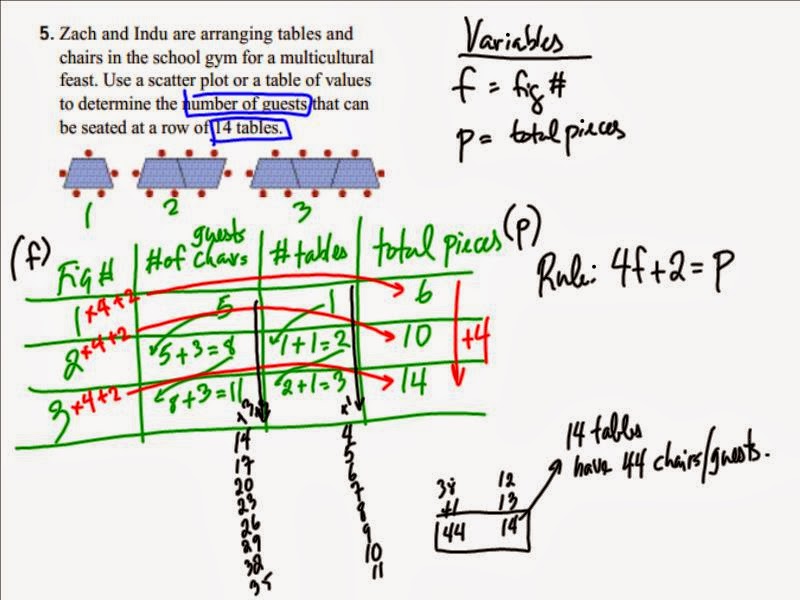 5. Zach and Indu are arranging tables and
chairs in the school gym for a multicultural
feast. Use a scatter plot or a table of values
to determine the number of guests that can
be seated at a row of 14 tables.
1 2 3
Variables
f = fig #
p = total pieces
(f) (p)
Fig # #of guests chairs # tables total pieces
1 x4+2 5 1 6
2 x4+2 5+3=8 1+1=2 10
3 x4+2 8+3=11 2+1=3 14
+4
Rule: 4f+2=p
14 4
17 5
20 6
23 7
26 8
29 9
32 10
35 11
38 12
41 13
44 14
14 tables
have 44 chairs/guests.